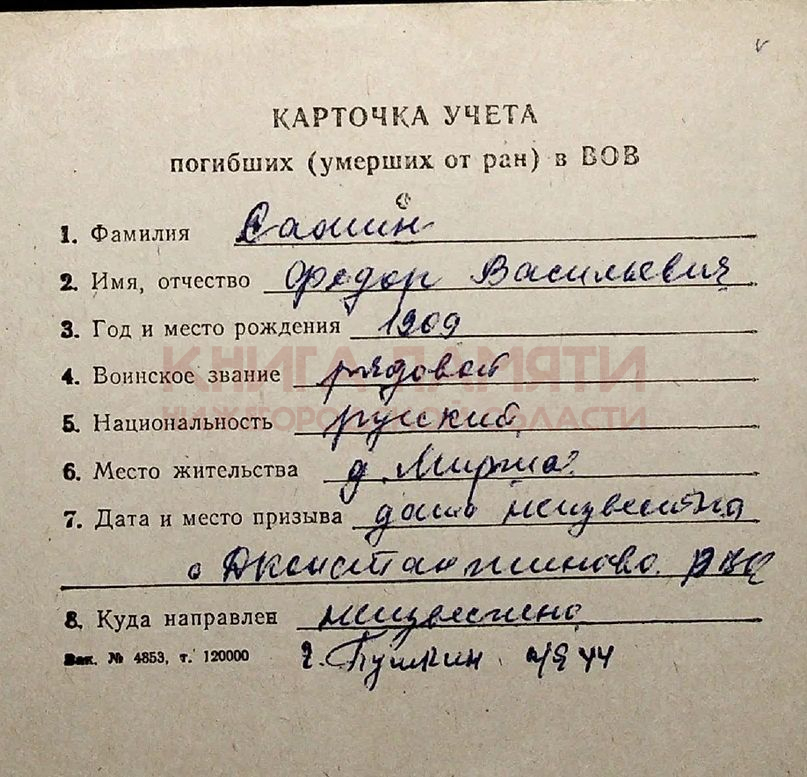 КАРТОЧКА УЧЕТА
погибших (умерших от ран) в ВОВ
1. Фамилия
2. Имя, отчество Федор Васильевич
3. Год и место рождения 1909
4. Воинское звание рядовой
КНИГА ПАМЯТИ
5. Национальность русский
НИЖЕГОРОДСКОЙ ОБЛАСТИ
6. Место жительства д.
7. Дата и место призыва дата неизвестна
РВК
8. Куда направлен неизвестно
Зак. № 4853, т. 120000
г. Пушкин